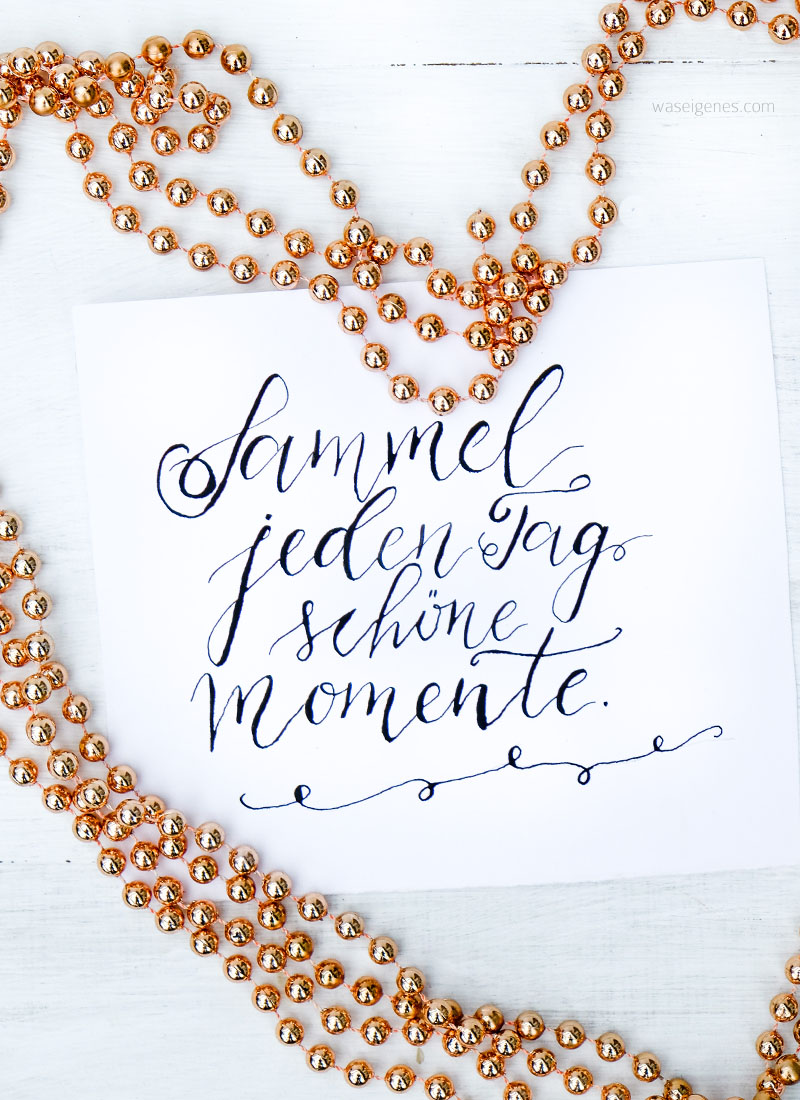 waseigenes.com
Sammel
jeden Tag
schöne
Momente.